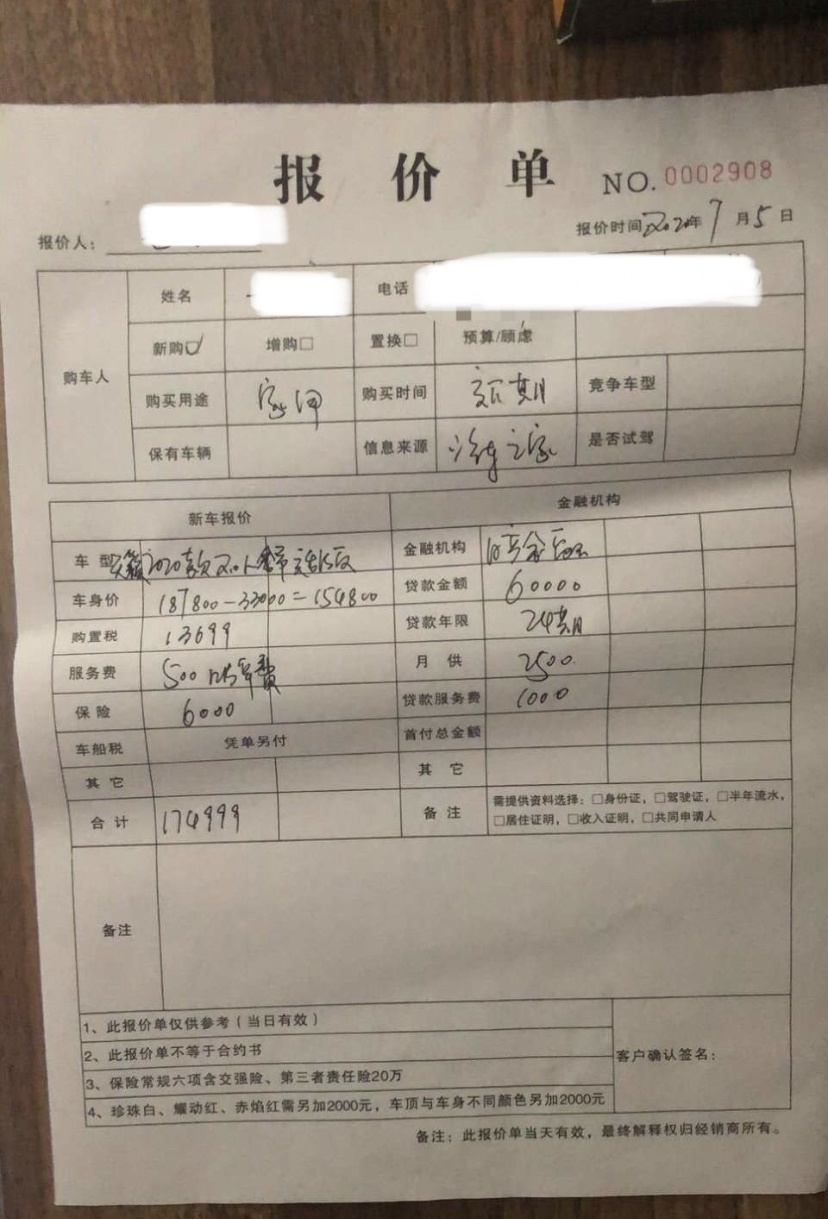 报价单 NO.0002908
报价人： 报价时间2020年7月5日
购车人 姓名 电话
新购☑ 增购□ 置换□ 预算/顾虑
购买用途 家用 购买时间 竞争车型
保有车辆 信息来源 之家 是否试驾
新车报价 金融机构
车型 天籁2020款2.0L 金融机构 日产金融
车身价 187800-33000=154800 贷款金额 60000
购置税 13699 贷款年限 24期
服务费 500 月供 2500
保险 6000 贷款服务费 1000
车船税 凭单另付 首付总金额
其它 其它
合计 174999 备注 需提供资料选择：□身份证，□驾驶证，□半年流水，
□居住证明，□收入证明，□共同申请人
备注
1、此报价单仅供参考（当日有效）
2、此报价单不等于合约书
3、保险常规六项含交强险、第三者责任险20万
4、珍珠白、耀动红、赤焰红需另加2000元，车顶与车身不同颜色另加2000元
客户确认签名：
备注：此报价单当天有效，最终解释权归经销商所有。